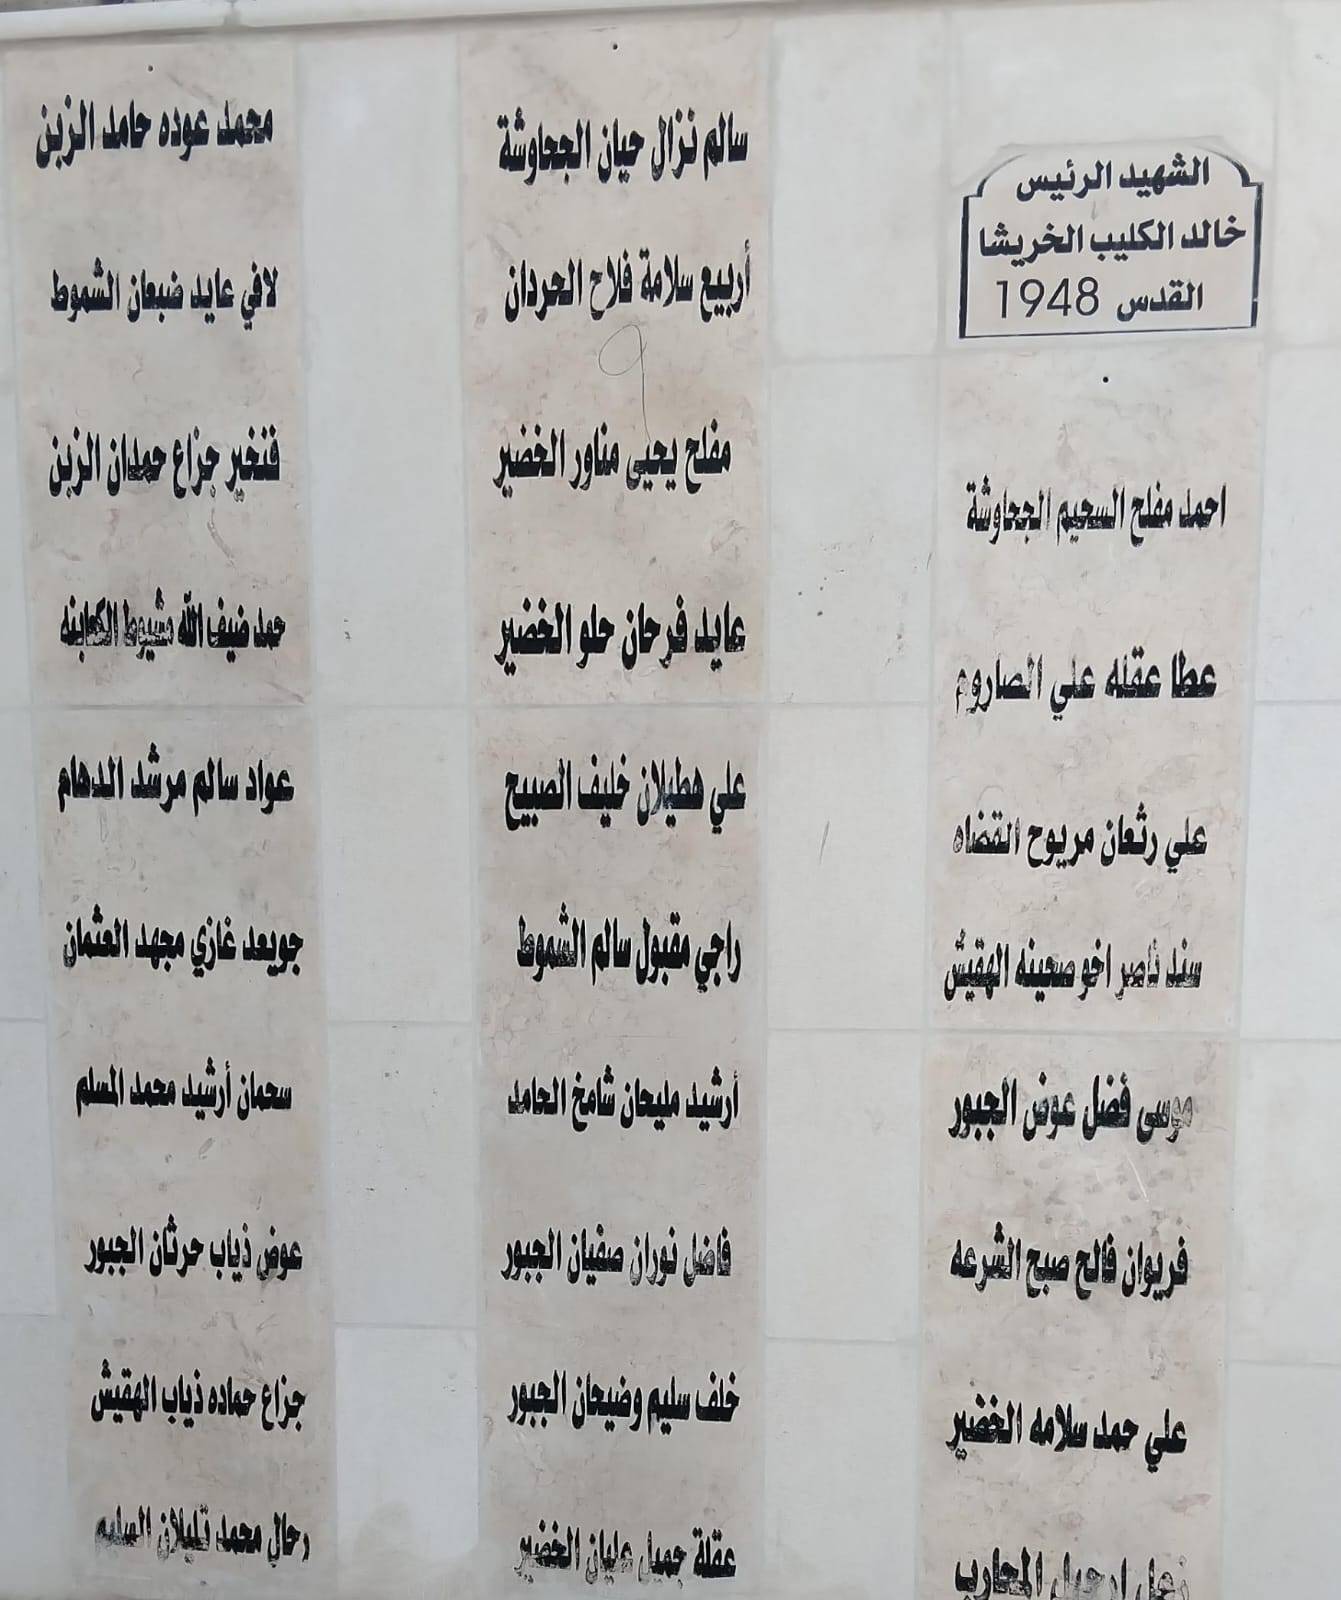 الشهيد الرئيس
خالد الكليب الخريشا
القدس 1948
احمد مفلح السحيم الجحاوشة
عطا عقله علي الصاروم
علي رثعان مريوح القضاه
سند ناصر اخو صحينه الهقيش
موسى فضل عوض الجبور
فريوان فالح صبح الشرعه
علي حمد سلامه الخضير
زعل ارحيل المحارب
سالم نزال حيان الجحاوشة
أربيع سلامة فلاح الحردان
مفلح يحيى مناور الخضير
عايد فرحان حلو الخضير
علي هطيلان خليف الصبيح
راجي مقبول سالم الشموط
أرشيد مليحان شامخ الحامد
فاضل نوران صفيان الجبور
خلف سليم وضيحان الجبور
عقلة جميل عليان الخضير
محمد عوده حامد الزبن
لافي عايد ضبعان الشموط
قنخير جزاع حمدان الزبن
حمد ضيف الله مشيوط الكعابنه
عواد سالم مرشد الدهام
جويعد غازي مجهد العثمان
سحمان أرشيد محمد المسلم
عوض ذياب حرثان الجبور
جزاع حماده ذياب الهقيش
رحال محمد تليلان السليم